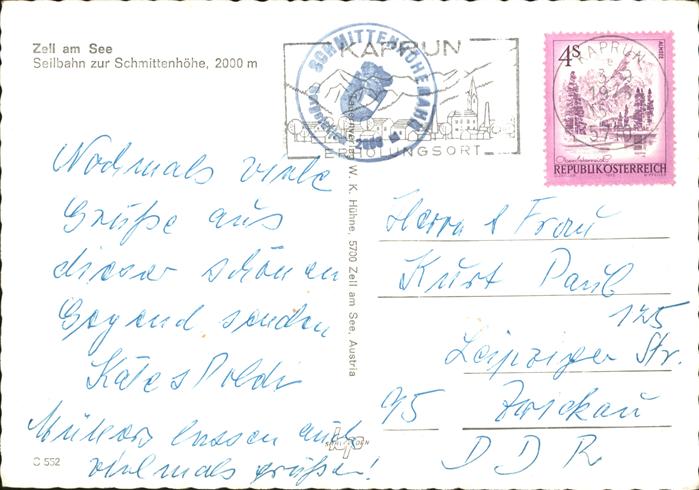 Zell am See
Seilbahn zur Schmittenhöhe, 2000 m
KAPRUN
ERHOLUNGSORT
SCHMITTENHÖHEBAHN
2000 m
4S
KAPRUN
REPUBLIK ÖSTERREICH
Nochmals viele
Grüße aus
dieser schönen
Gegend senden
Käte & Poldi
lassen auch
vielmals grüßen!
W. K. Hühne, 5700 Zell am See, Austria
Herrn & Frau
Kurt Paul
125
Leipziger Str.
95 Zwickau
DDR
C 552